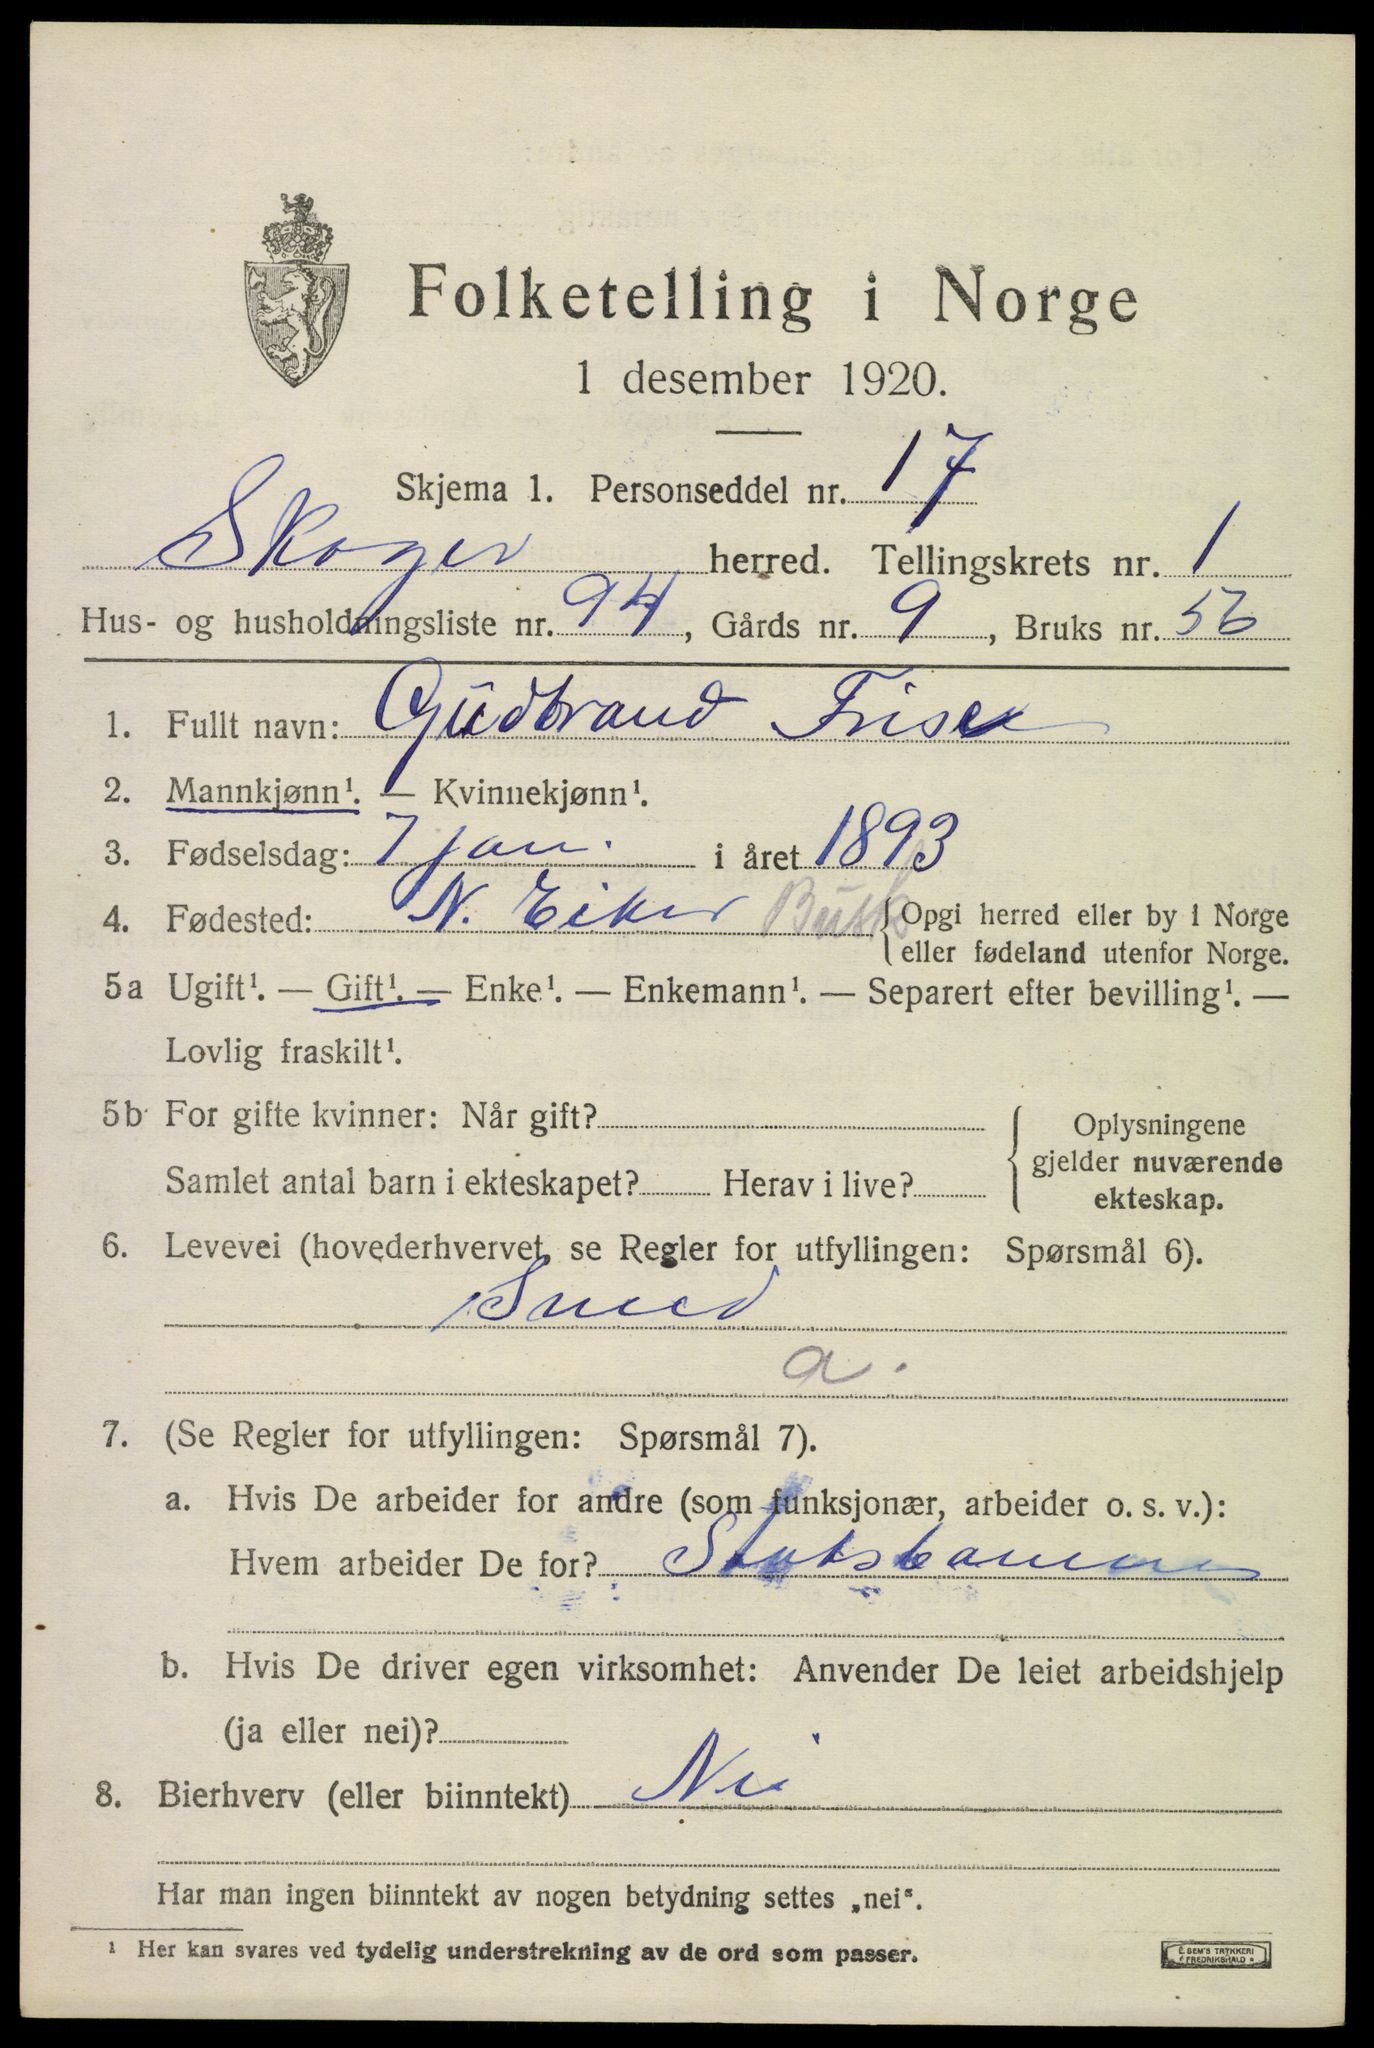 Folketelling i Norge
1 desember 1920.
Skjema 1. Personseddel nr. 17
Skoger herred. Tellingskrets nr. 1
Hus- og husholdningsliste nr. 94, Gårds nr. 9, Bruks nr. 56
1. Fullt navn: Gudbrand
2. Mannkjønn¹. — Kvinnekjønn¹.
3. Fødselsdag: 7 jan. i året 1893
4. Fødested: N. Eiker Busk {Opgi herred eller by i Norge
eller fødeland utenfor Norge.
5a Ugift¹. — Gift¹. — Enke¹. — Enkemann¹. — Separert efter bevilling¹. —
Lovlig fraskilt¹.
5b For gifte kvinner: Når gift?
Samlet antal barn i ekteskapet? Herav i live?
Oplysningene
gjelder nuværende
ekteskap.
6. Levevei (hovederhvervet, se Regler for utfyllingen: Spørsmål 6).
Smed
a.
7. (Se Regler for utfyllingen: Spørsmål 7).
a. Hvis De arbeider for andre (som funksjonær, arbeider o. s. v.):
Hvem arbeider De for? Statsbanerne
b. Hvis De driver egen virksomhet: Anvender De leiet arbeidshjelp
(ja eller nei)?
8. Bierhverv (eller biinntekt) Nei
Har man ingen biinntekt av nogen betydning settes „nei".
¹ Her kan svares ved tydelig understrekning av de ord som passer.
E. SEM'S TRYKKERI
FREDRIKSHALD